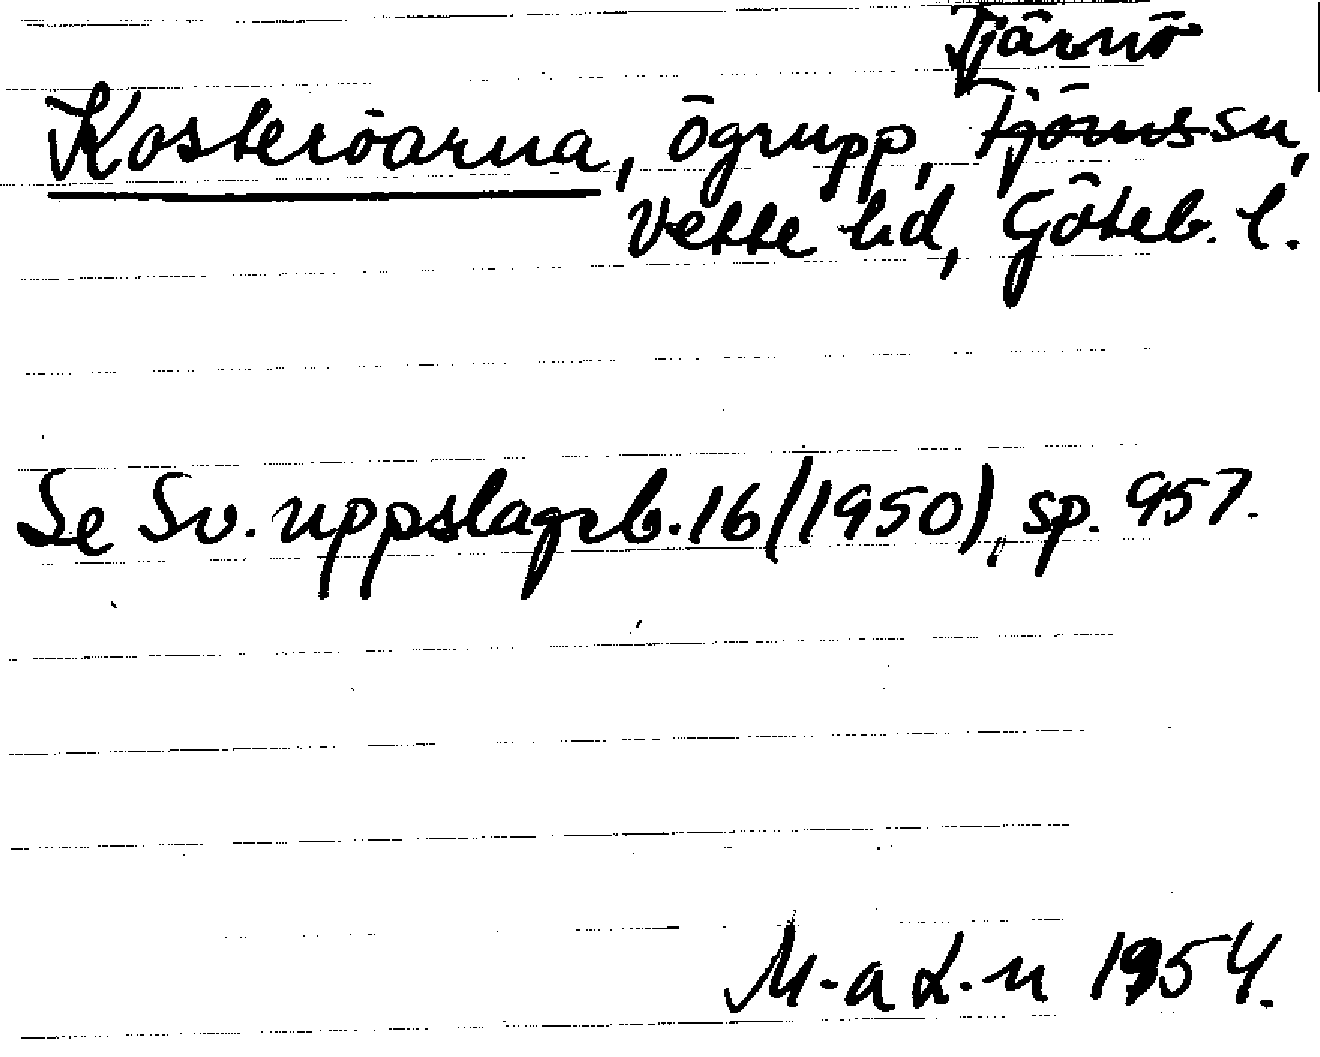 Tjärnö
Kosteröarna, ögrupp, Tjörns sn,
Vette hd, Göteb. l.
Se Sv. uppslagsb. 16 (1950), sp. 957.
M-a L-n 1954.